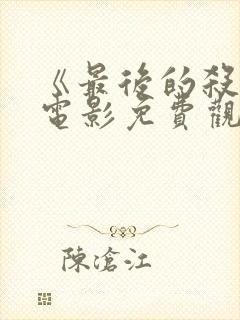 《最後的殺
電影免費觀
陳滄江